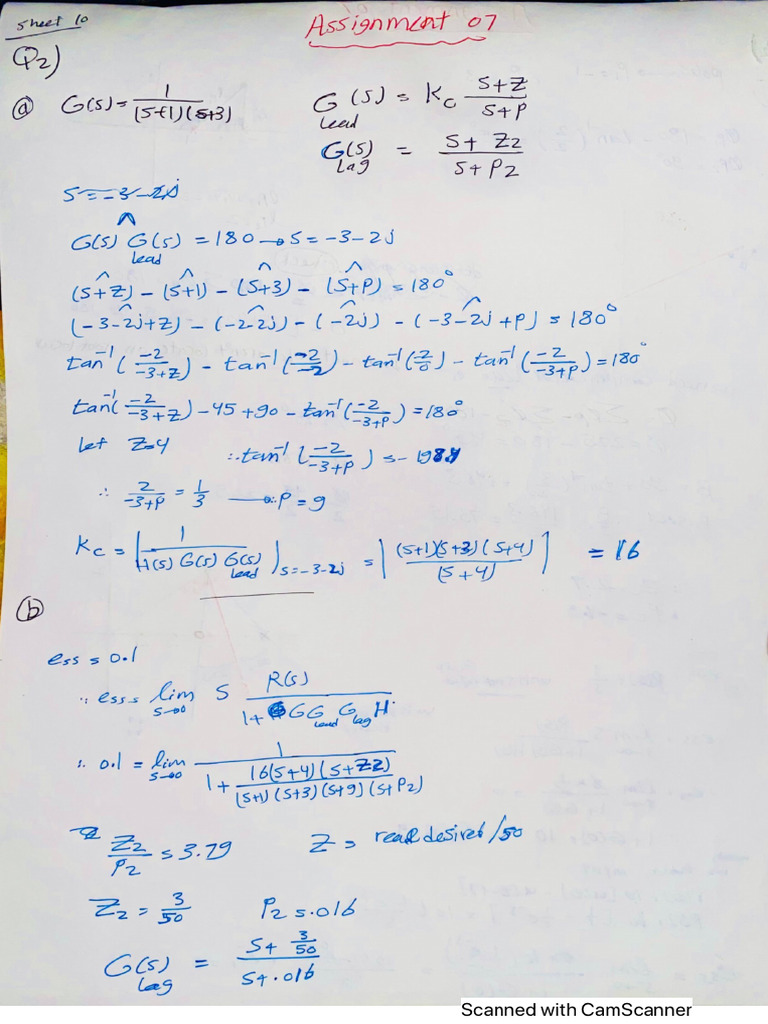 Sheet 10
Assignment 07
Q2)
(a) G(s) = 1 / (s+1)(s+3)
G(s) Lead = Kc (s+z) / (s+p)
G(s) Lag = (s+z2) / (s+p2)
s = -3-2j
G(s) G(s) Lead = 180 → s = -3-2j
(s+z) - (s+1) - (s+3) - (s+p) = 180°
(-3-2j+z) - (-2-2j) - (-2j) - (-3-2j+p) = 180°
tan⁻¹(-2 / -3+z) - tan⁻¹(-2 / -2) - tan⁻¹(2/0) - tan⁻¹(-2 / -3+p) = 180°
tan⁻¹(-2 / -3+z) - 45 + 90 - tan⁻¹(-2 / -3+p) = 180°
let z=4 ∴ tan⁻¹(-2 / -3+p) =
∴ 2 / -3+p = 1/3 → ∴ p = 9
Kc = |1 / H(s) G(s) G(s) Lead| s=-3-2j = |(s+1)(s+3)(s+4) / (s+4)| = 16
(b)
ess = 0.1
∴ ess = lim s→0 S R(s) / 1+ G GLead GLag H
∴ 0.1 = lim s→0 1 / 1 + 16(s+4)(s+z2) / (s+1)(s+3)(s+9)(s+p2)
z2 / p2 = 3.79 Z = real desired/50
Z2 = 3/50 P2 = .016
G(s) Lag = (s + 3/50) / (s+.016)
Scanned with CamScanner